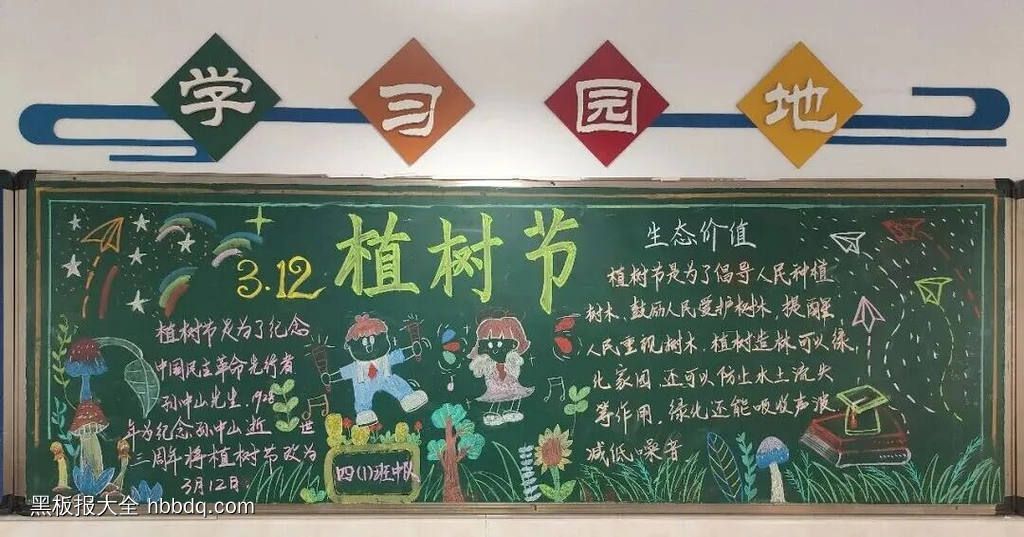 学习园地
3.12 植树节
植树节是为了纪念
中国民主革命先行者
孙中山先生.1928
年为纪念孙中山逝世
三周年将植树节改为
3月12日.
四(1)班中队
生态价值
植树节是为了倡导人民种植
树木、鼓励人民爱护树木、提醒
人民重视树木.植树造林可以绿
化家园 还可以防止水土流失
等作用.绿化还能吸收声波
减低噪音
黑板报大全 hbbdq.com